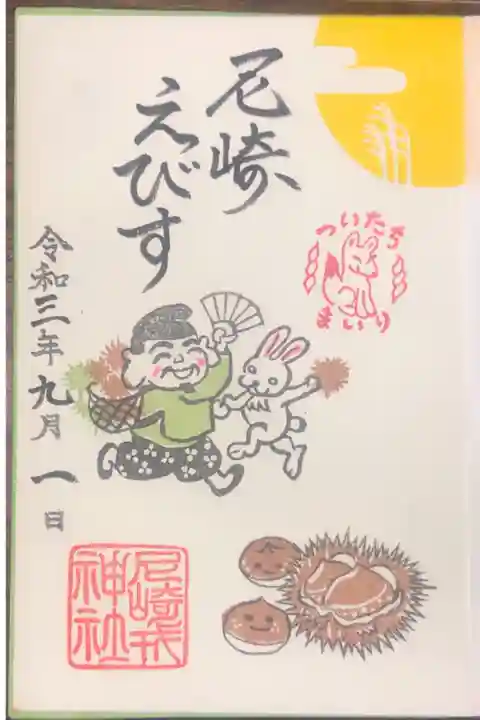 尼崎
えびす
ついたち
まいり
令和三年九月一日
尼崎戎
神社